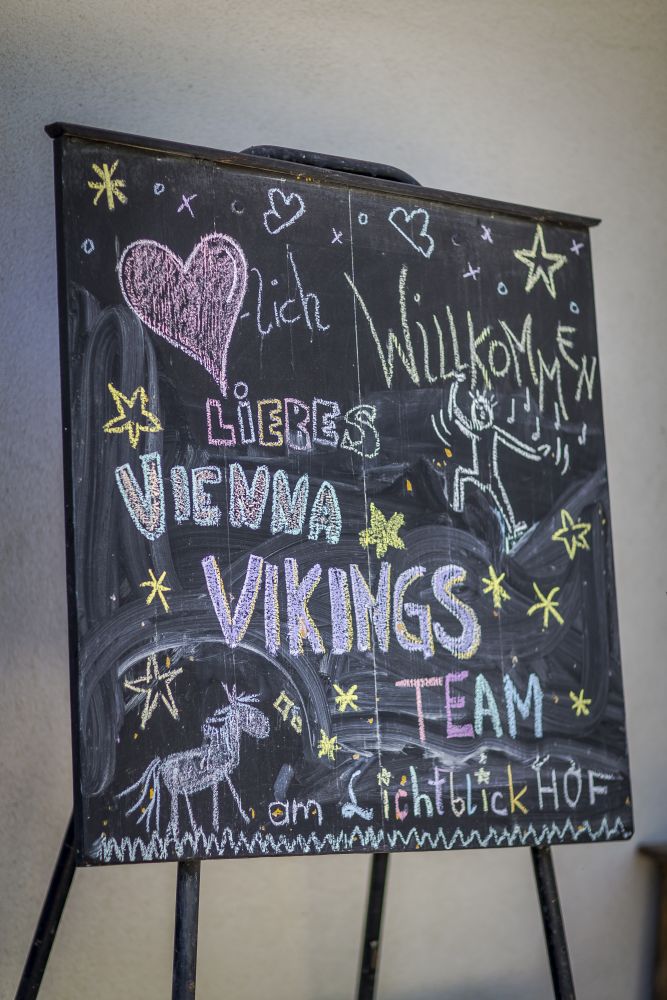 -lich Willkommen
LiEBES
VIENNA
VIKINGS
TEAM
am Lichtblick HOF